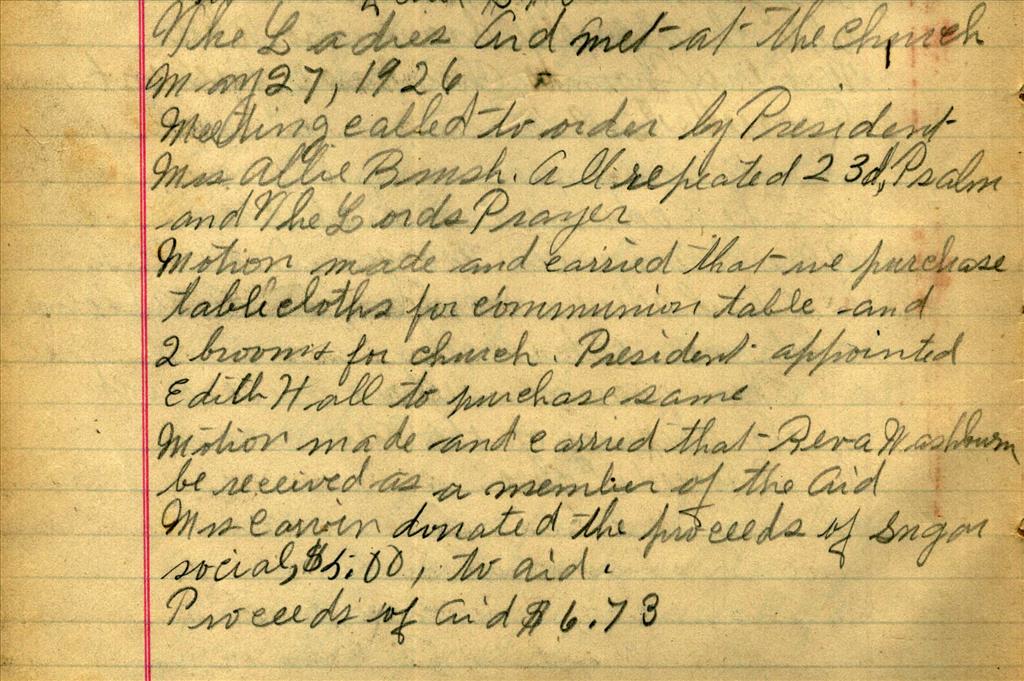 The Ladies Aid met at the Church
May 27, 1926
Meeting called to order by President
Mrs Allie Brush. All repeated 23d, Psalm
and The Lords Prayer
Motion made and carried that we purchase
tablecloths for communion table and
2 brooms for church. President appointed
Edith Hall to purchase same
Motion made and carried that Reva Washburn
be received as a member of the Aid
Mrs donated the proceeds of sugar
social, $5.00, to aid.
Proceeds of Aid $6.73